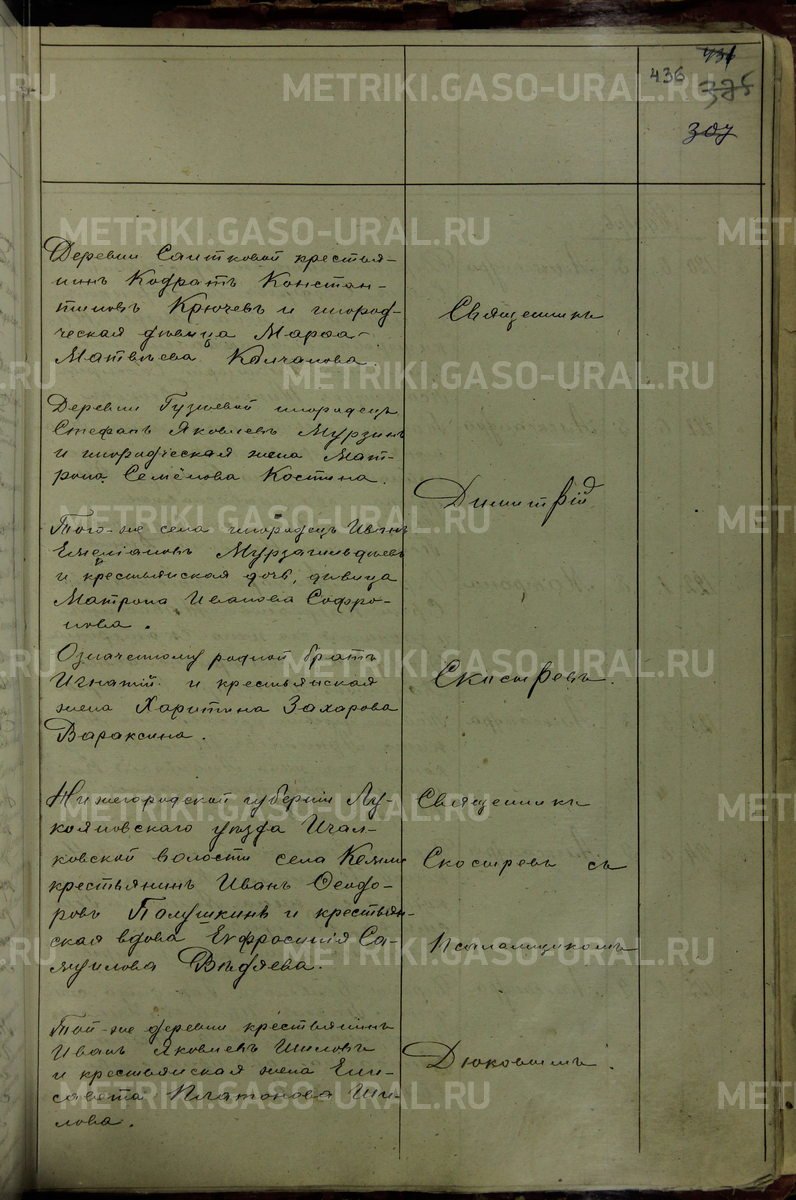 436
375
307
Деревни Саитковой крестья-
нинъ Кодратъ Констан-
тиновъ Крючевъ и инород-
ческая дѣвица Марѳа
Матвѣева Колчанова.
Священникъ
Деревни Гузеевой инородецъ
Стефанъ Яковлевъ Мурзинъ
и инородческая жена Мат-
рона Семёнова Костина.
Димитрій
Того-же села инородецъ Иванъ
Емеліановъ Мурзагильдѣевъ
и крестьянская дочь, дѣвица
Матрона Иванова Софро-
нова.
Означенному родной братъ
Игнатій и крестьянская
жена Харитина Захарова
Вараксина.
Скосыревъ.
Нижегородской губерніи Лу-
кояновскаго уѣзда Ичал-
ковской волости села Кемли
крестьянинъ Иванъ Ѳеодо-
ровъ Полушкинъ и крестьян-
ская вдова Евфросинія Са-
муилова Видяева.
Священникъ
Скосыревъ съ
Псаломщикомъ
Той-же деревни крестьянинъ
Иванъ Яковлевъ Шиловъ
и крестьянская жена Ели-
савета Платонова Ши-
лова.
Дюковымъ.
METRIKI.GASO-URAL.RU